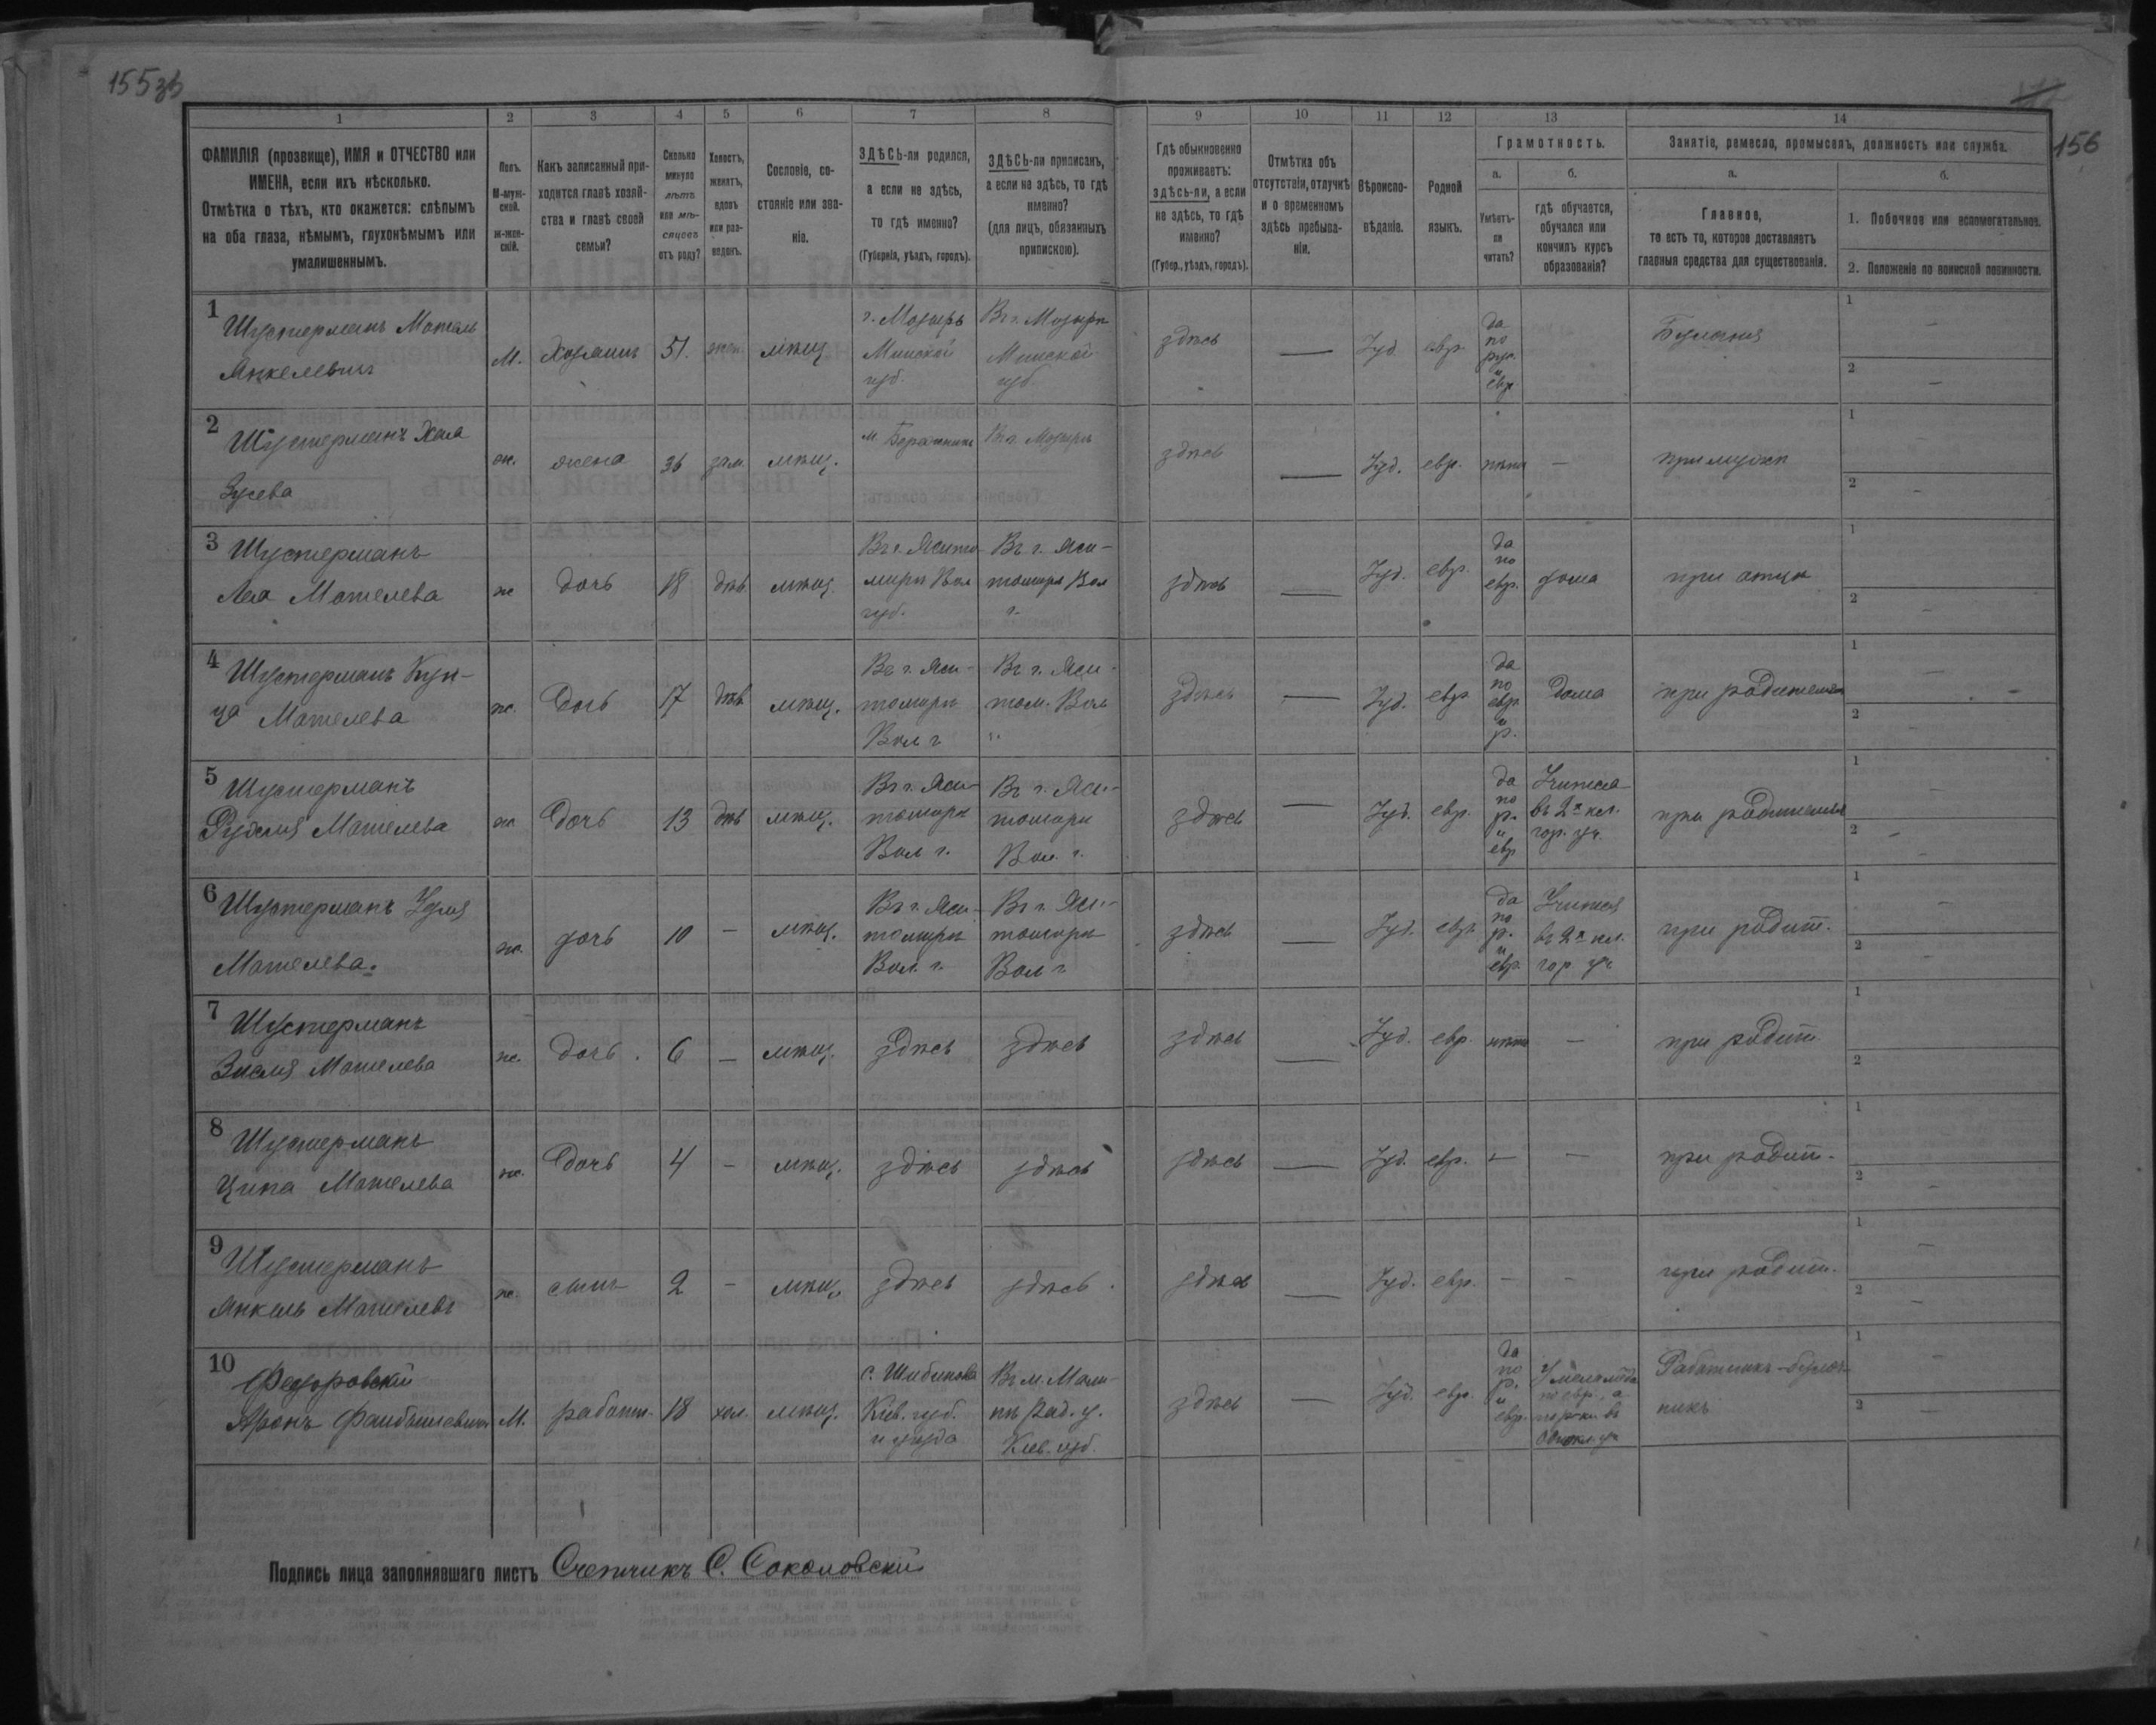 155 об
156
1 2 3 4 5 6 7 8 9 10 11 12 13 14
ФАМИЛІЯ (прозвище), ИМЯ и ОТЧЕСТВО или
ИМЕНА, если ихъ нѣсколько.
Отмѣтка о тѣхъ, кто окажется: слѣпымъ
на оба глаза, нѣмымъ, глухонѣмымъ или
умалишеннымъ.
Полъ.
М-муж-
ской.
ж-жен-
скій.
Какъ записанный при-
ходится главѣ хозяй-
ства и главѣ своей
семьи?
Сколько
минуло
лѣтъ
или мѣ-
сяцевъ
отъ роду?
Холостъ,
женатъ,
вдовъ
или раз-
веденъ.
Сословіе, со-
стояніе или зва-
ніе.
ЗДѢСЬ-ли родился,
а если не здѣсь,
то гдѣ именно?
(Губернія, уѣздъ, городъ).
ЗДѢСЬ-ли приписанъ,
а если не здѣсь, то гдѣ
именно?
(для лицъ, обязанныхъ
припискою).
Гдѣ обыкновенно
проживаетъ:
здѣсь-ли, а если
не здѣсь, то гдѣ
именно?
(Губер., уѣздъ, городъ).
Отмѣтка объ
отсутствіи, отлучкѣ
и о временномъ
здѣсь пребыва-
ніи.
Вѣроиспо-
вѣданіе.
Родной
языкъ.
Грамотность.
а.
Умѣетъ-
ли
читать?
б.
гдѣ обучается,
обучался или
кончилъ курсъ
образованія?
Занятіе, ремесло, промыселъ, должность или служба.
а.
Главное,
то есть то, которое доставляетъ
главныя средства для существованія.
б.
1. Побочное или вспомогательное.
2. Положеніе по воинской повинности.
1 Шустерманъ Мотель
Янкелевичъ
М.
Хозяинъ
51.
жен.
мѣщ
г. Мозырь
Минской
губ.
Въ г. Мозырѣ
Минской
губ
здѣсь
—
Іуд.
евр.
да
по
рус.
и
евр.
1 —
2 —
2 Шустерманъ Хая
Зусева
ж.
жена
36
зам.
мѣщ.
Въ г. Мозырѣ
здѣсь
—
Іуд.
евр.
нѣтъ
—
при мужѣ
1
2 —
3 Шустерманъ
Лея Мотелева
ж
дочь
18
дѣв.
мѣщ.
Въ г. Жито-
мирѣ Вол
губ.
Въ г. Жи-
томирѣ Вол
г.
здѣсь
—
Іуд.
евр.
да
по
евр.
дома
при отцѣ
1
2 —
4 Шустерманъ
Мотелева
ж.
Дочь
17
дѣв
мѣщ.
Въ г. Жи-
томирѣ
Вол г
Въ г. Жи-
том. Вол
"
здѣсь
—
Іуд.
евр
да
по
евр.
и
р.
Дома
при родителях
1 —
2 —
5 Шустерманъ
Мотелева
ж
Дочь
13
дѣв
мѣщ.
Въ г. Жи-
томирѣ
Вол г.
Въ г. Жи-
томирѣ
Вол. г.
здѣсь
—
Іуд.
евр.
да
по
р.
и
евр
Учится
въ 2х кл.
гор. уч.
при родителях
1 —
2 —
6 Шустерманъ
Мотелева.
ж.
дочь
10
—
мѣщ.
Въ г. Жи-
томирѣ
Вол. г.
Въ г. Жи-
томирѣ
Вол г
здѣсь
—
Іуд.
евр.
да
по
р.
и
евр.
Учится
въ 2х кл.
гор. уч
при родит.
1 —
2 —
7 Шустерманъ
Мотелева
ж.
дочь.
6
—
мѣщ.
здѣсь
здѣсь
здѣсь
—
Іуд.
евр.
нѣтъ
—
при родит.
1
2
8 Шустерманъ
Ципа Мотелева
ж.
Дочь
4
—
мѣщ.
здѣсь
здѣсь
здѣсь
—
Іуд.
евр.
—
—
при родит.
1
2 —
9 Шустерманъ
Янкель Мотелевъ
сынъ
2
—
мѣщ.
здѣсь
здѣсь.
здѣсь
—
Іуд.
евр.
—
—
при родит.
1 —
2 —
10
Аронъ
М.
работн.
18
хол.
мѣщ.
Кіев. губ.
и уѣзда
Въ м. Мали-
нѣ Рад. у.
Кіев. губ.
здѣсь
—
Іуд.
евр.
да
по
р.
и
евр.
У меламеда
по евр., а
Работникъ-булоч-
никъ
1 —
2 —
Подпись лица заполнявшаго листъ Счетчикъ С. Соколовскій